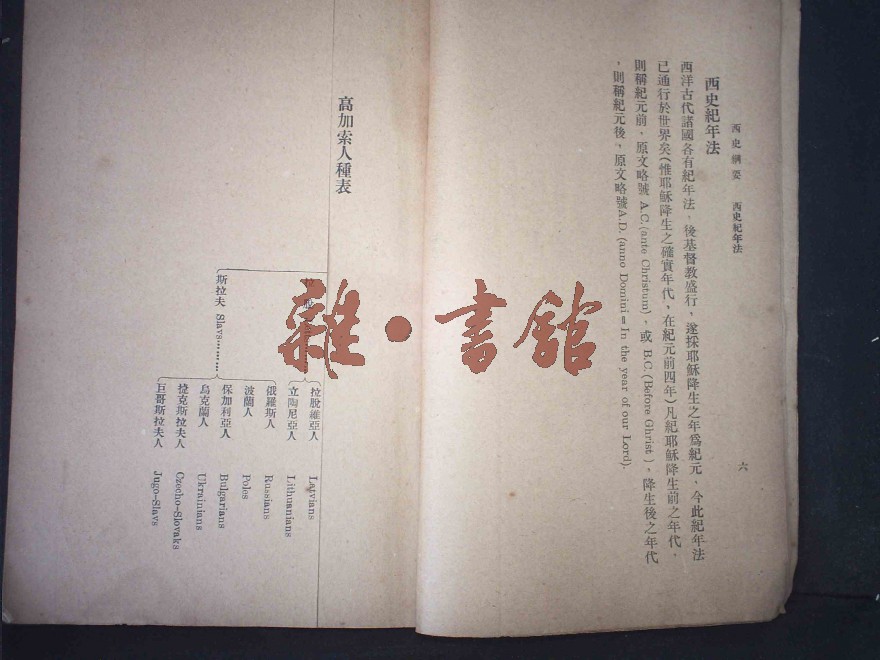 西史綱要　西史紀年法
六
西史紀年法
西洋古代諸國各有紀年法，後基督教盛行，遂採耶穌降生之年爲紀元，今此紀年法
已通行於世界矣(惟耶穌降生之確實年代，在紀元前四年)凡紀耶穌降生前之年代，
則稱紀元前，原文略號 A.C.(ante Christum)，或 B.C.(Before Ghrist)，降生後之年代
，則稱紀元後，原文略號A.D. (anno Domini = In the year of our Lord).
高加索人種表
拉脫維亞人 Latvians
立陶尼亞人 Lithuanians
斯拉夫 Slavs………
俄羅斯人 Russians
波蘭人 Poles
保加利亞人 Bulgarians
烏克蘭人 Ukrainians
捷克斯拉夫人 Czecho-Slovaks
巨哥斯拉夫人 Jugo-Slavs
雜·書館